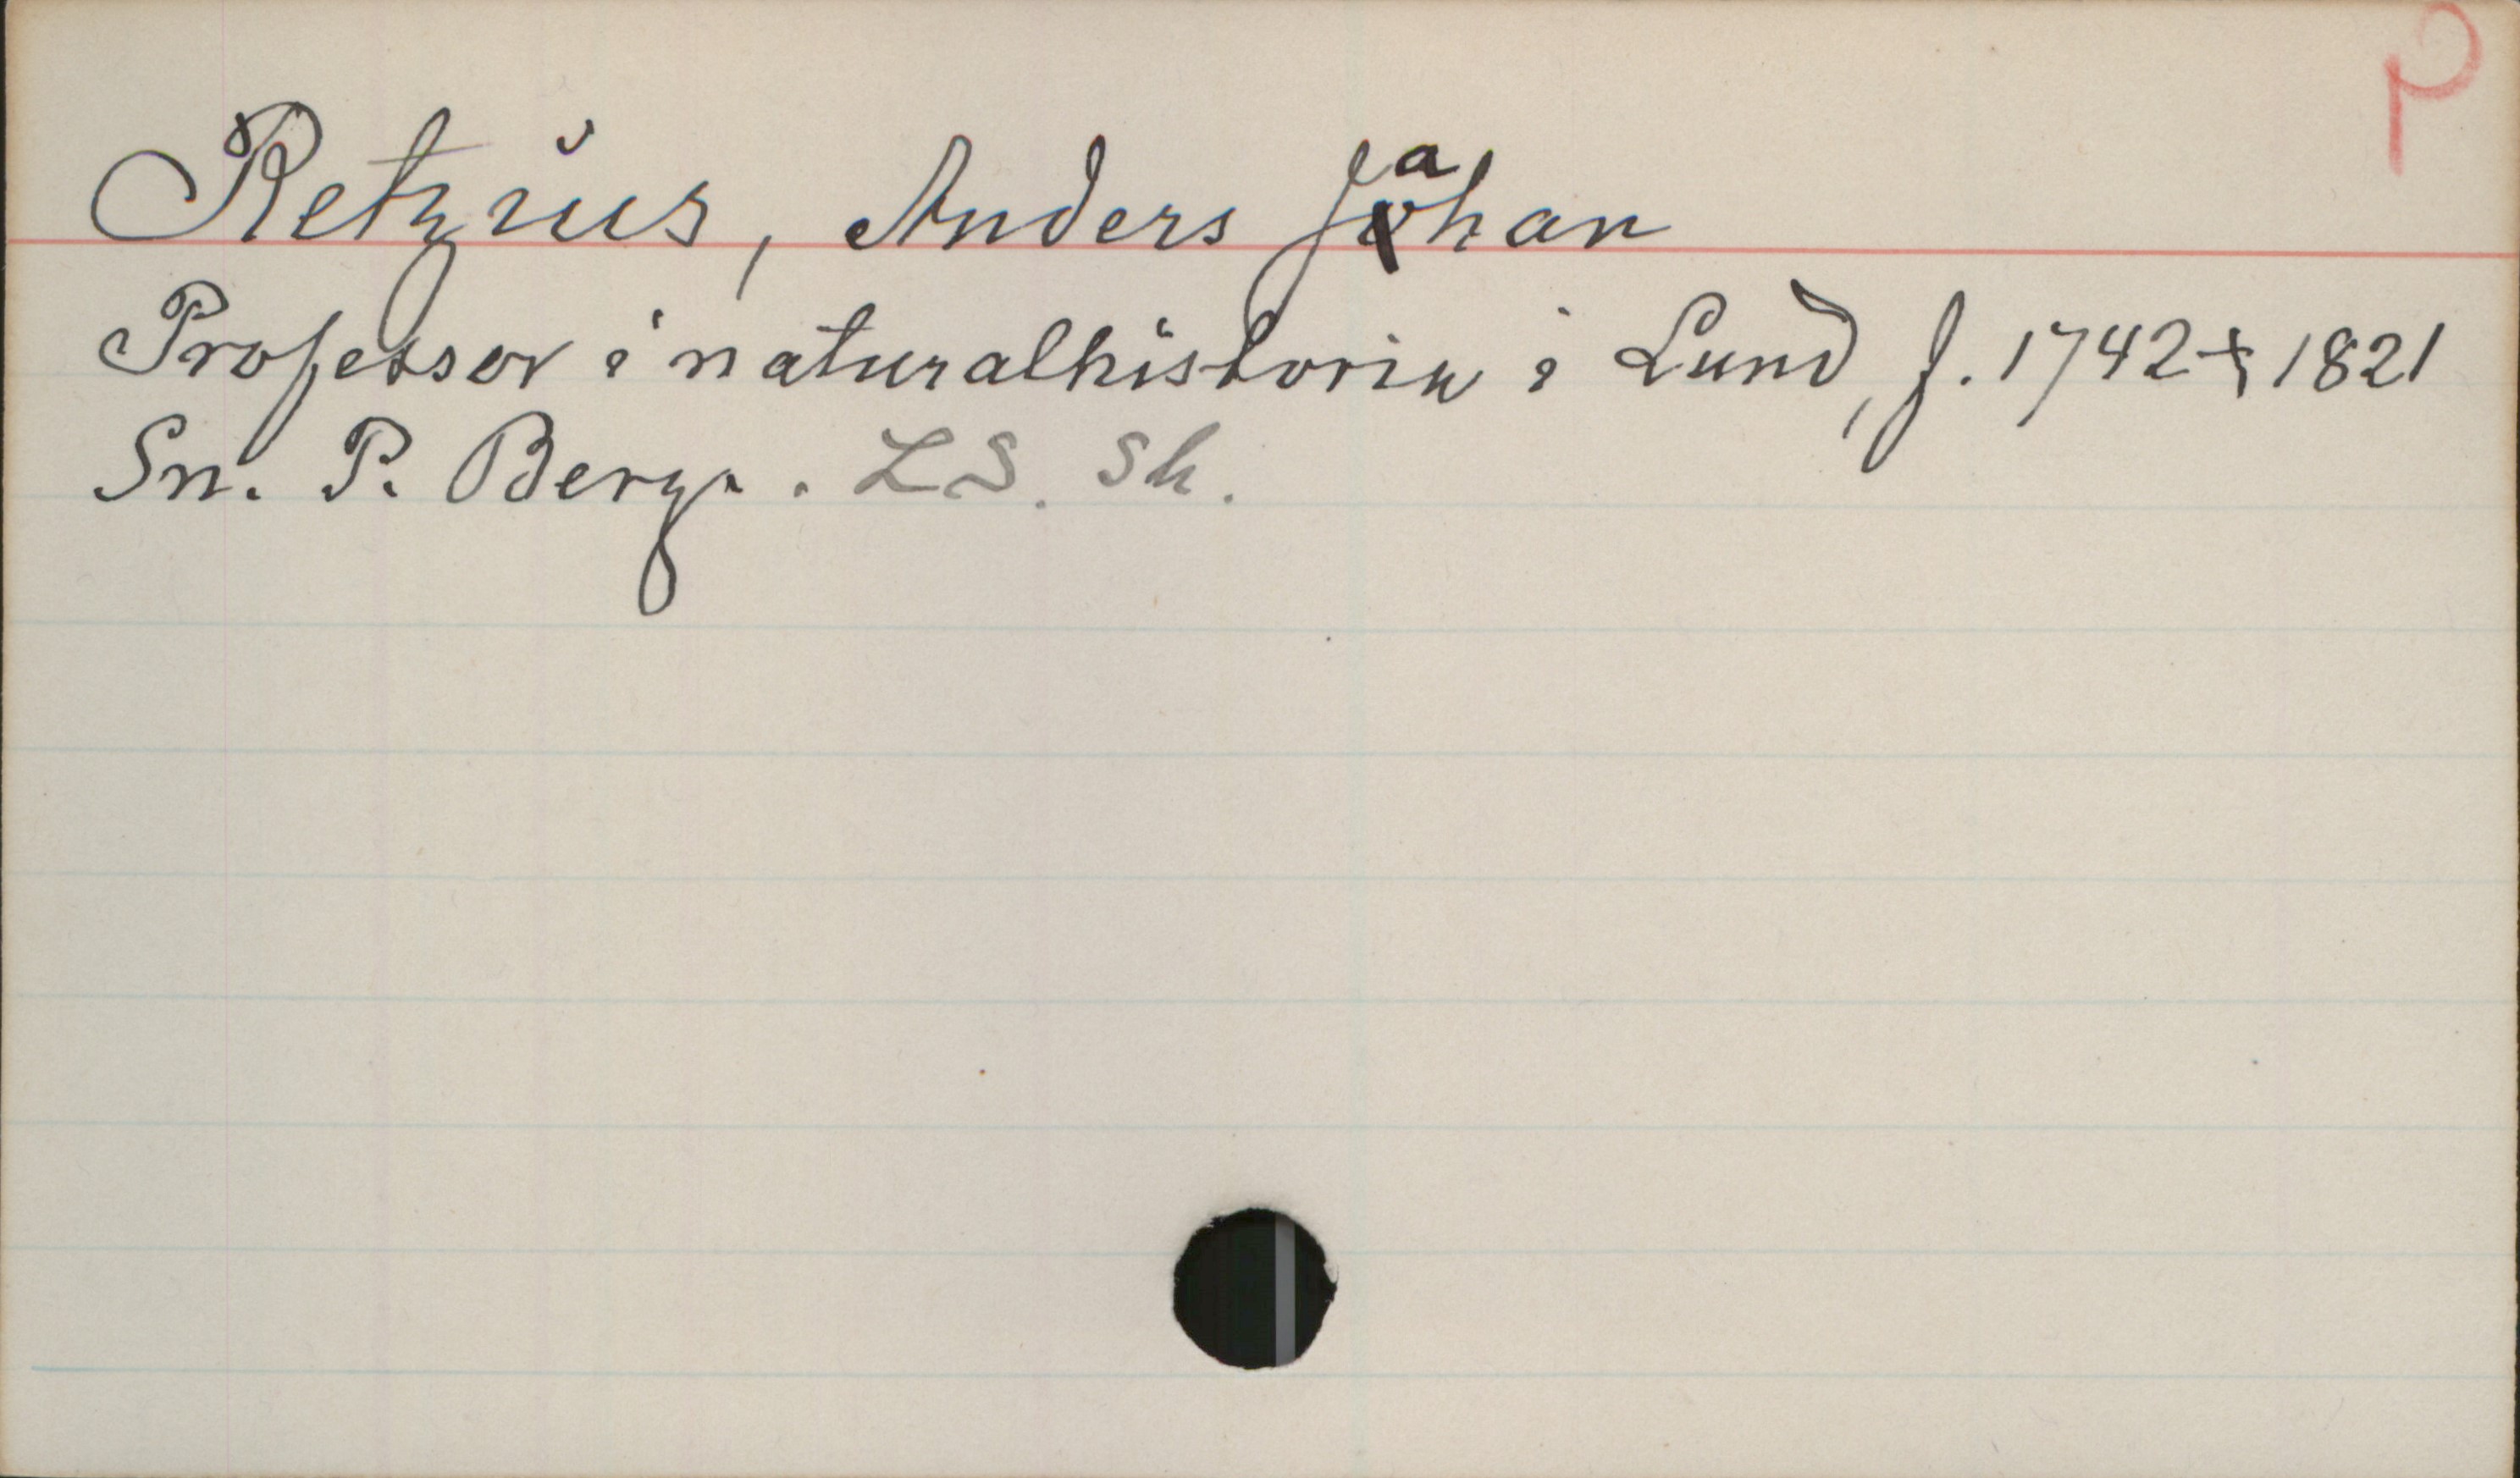 P
Retzius, Anders Jahan
Professor i naturalhistoria i Lund, f. 1742 † 1821
Sn. P. Berg. LS. Sh.